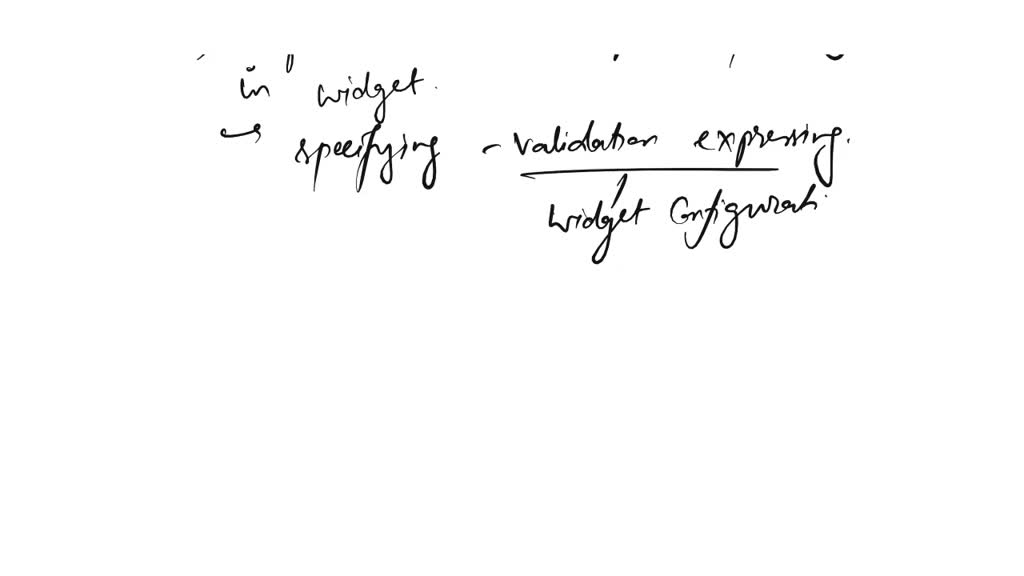 in widget.
↪ specifying - validation expressing.
widget Configurati